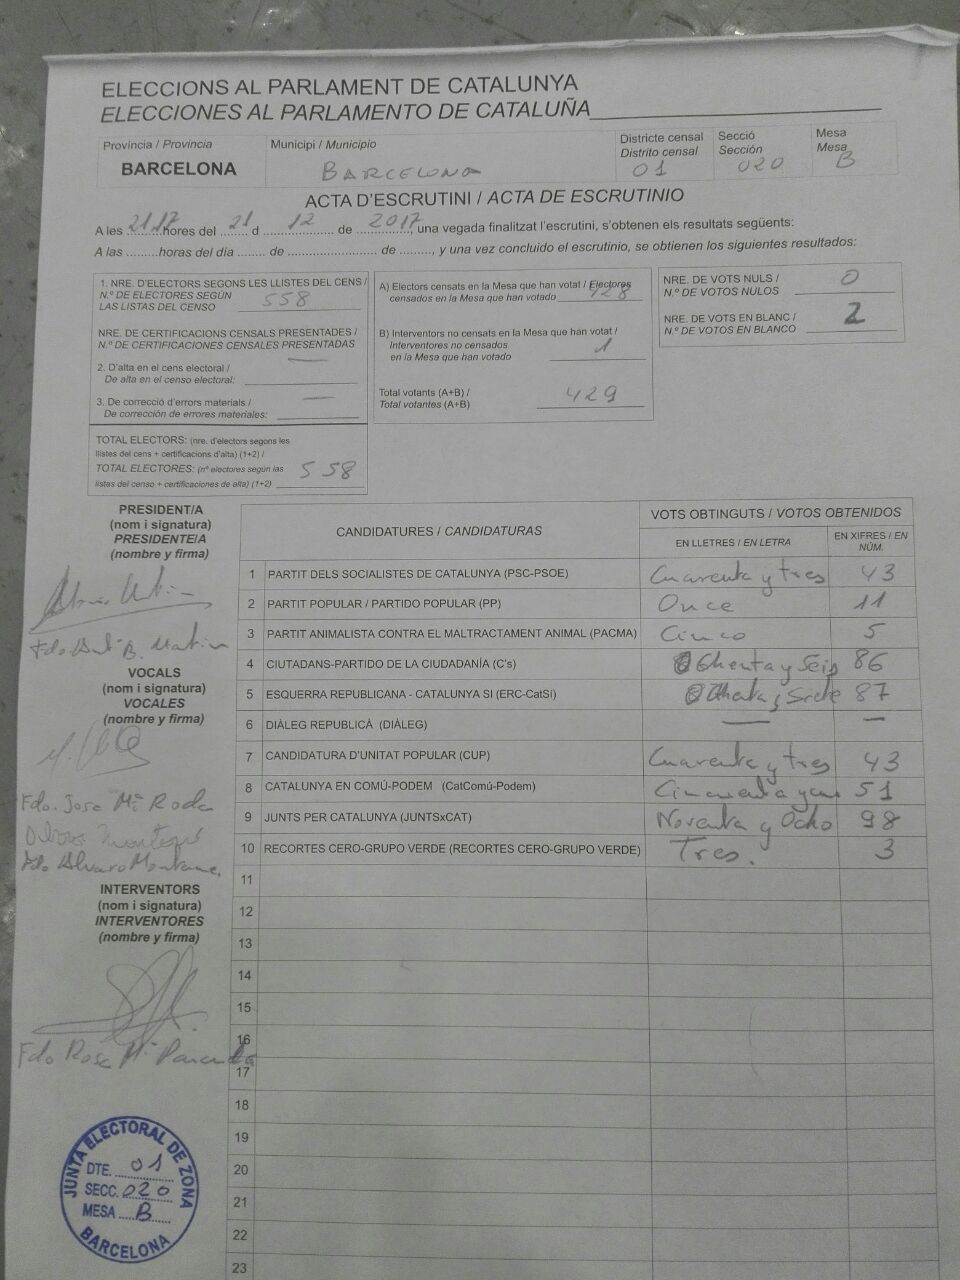 ELECCIONS AL PARLAMENT DE CATALUNYA
ELECCIONES AL PARLAMENTO DE CATALUÑA
Província / Provincia
BARCELONA
Municipi / Municipio
BARCELONA
Districte censal
Distrito censal
01
Secció
Sección
020
Mesa
Mesa
B
ACTA D'ESCRUTINI / ACTA DE ESCRUTINIO
A les 21.17 hores del 21 d 12 de 2017, una vegada finalitzat l'escrutini, s'obtenen els resultats següents:
A las .........horas del día ....... de ........................ de ........., y una vez concluido el escrutinio, se obtienen los siguientes resultados:
1. NRE. D'ELECTORS SEGONS LES LLISTES DEL CENS /
N.º DE ELECTORES SEGÚN
LAS LISTAS DEL CENSO 558
NRE. DE CERTIFICACIONS CENSALS PRESENTADES /
N.º DE CERTIFICACIONES CENSALES PRESENTADAS
2. D'alta en el cens electoral /
De alta en el censo electoral: —
3. De correcció d'errors materials /
De corrección de errores materiales: —
TOTAL ELECTORS: (nre. d'electors segons les
llistes del cens + certificacions d'alta) (1+2) /
TOTAL ELECTORES: (nº electores según las
listas del censo + certificaciones de alta) (1+2) 558
A) Electors censats en la Mesa que han votat / Electores
censados en la Mesa que han votado 428
B) Interventors no censats en la Mesa que han votat /
Interventores no censados
en la Mesa que han votado 1
Total votants (A+B) /
Total votantes (A+B) 429
NRE. DE VOTS NULS /
N.º DE VOTOS NULOS 0
NRE. DE VOTS EN BLANC /
N.º DE VOTOS EN BLANCO 2
PRESIDENT/A
(nom i signatura)
PRESIDENTE/A
(nombre y firma)
VOCALS
(nom i signatura)
VOCALES
(nombre y firma)
Fdo. Jose Mª Roda
Fdo Alvaro
INTERVENTORS
(nom i signatura)
INTERVENTORES
(nombre y firma)
Fdo Rosa Mª
CANDIDATURES / CANDIDATURAS
VOTS OBTINGUTS / VOTOS OBTENIDOS
EN LLETRES / EN LETRA
EN XIFRES / EN NÚM.
1 PARTIT DELS SOCIALISTES DE CATALUNYA (PSC-PSOE) Cuarenta y tres 43
2 PARTIT POPULAR / PARTIDO POPULAR (PP) Once 11
3 PARTIT ANIMALISTA CONTRA EL MALTRACTAMENT ANIMAL (PACMA) Cinco 5
4 CIUTADANS-PARTIDO DE LA CIUDADANÍA (C's) Ochenta y Seis 86
5 ESQUERRA REPUBLICANA - CATALUNYA SI (ERC-CatSí) Ochenta y Siete 87
6 DIÀLEG REPUBLICÀ (DIÀLEG) — —
7 CANDIDATURA D'UNITAT POPULAR (CUP) Cuarenta y tres 43
8 CATALUNYA EN COMÚ-PODEM (CatComú-Podem) Cincuenta y un 51
9 JUNTS PER CATALUNYA (JUNTSxCAT) Noventa y Ocho 98
10 RECORTES CERO-GRUPO VERDE (RECORTES CERO-GRUPO VERDE) Tres. 3
11
12
13
14
15
16
17
18
19
20
21
22
23
JUNTA ELECTORAL DE ZONA
DTE. 01
SECC. 020
MESA B
BARCELONA